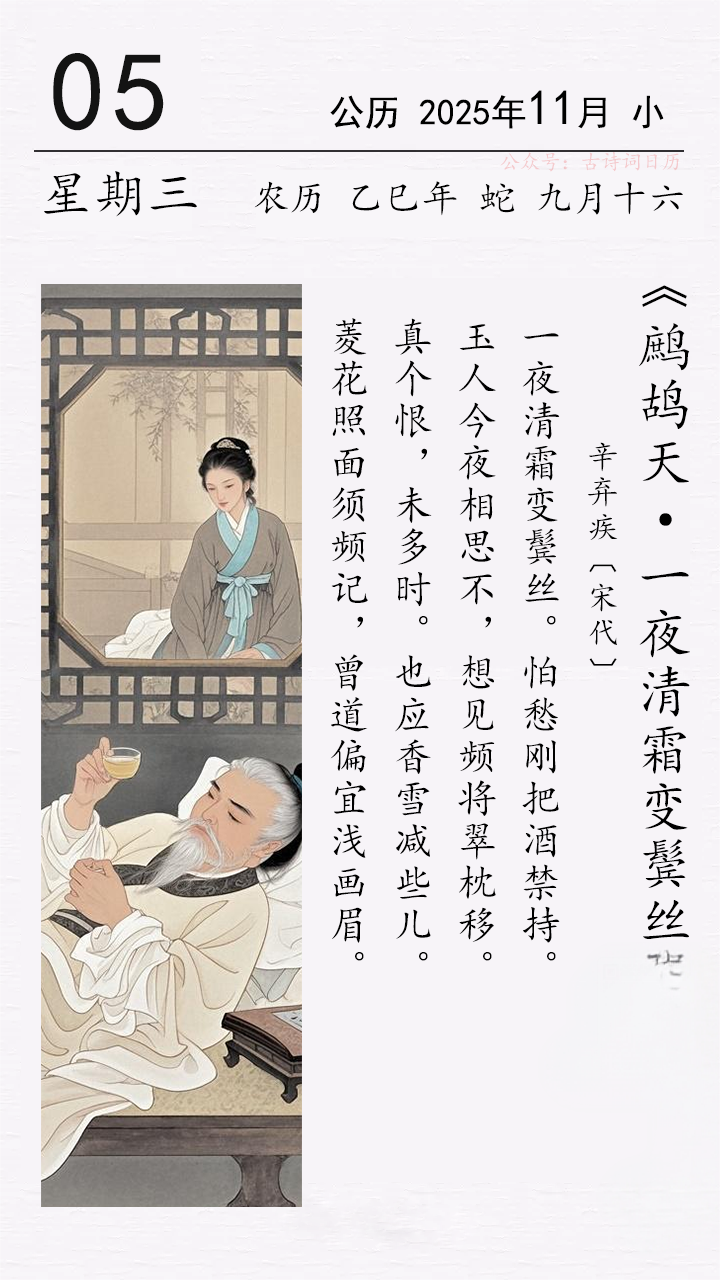 05
公历 2025年11月 小
公众号：古诗词日历
星期三 农历 乙巳年 蛇 九月十六
《鹧鸪天·一夜清霜变鬓丝
辛弃疾〔宋代〕
一夜清霜变鬓丝。怕愁刚把酒禁持。
玉人今夜相思不，想见频将翠枕移。
真个恨，未多时。也应香雪减些儿。
菱花照面须频记，曾道偏宜浅画眉。